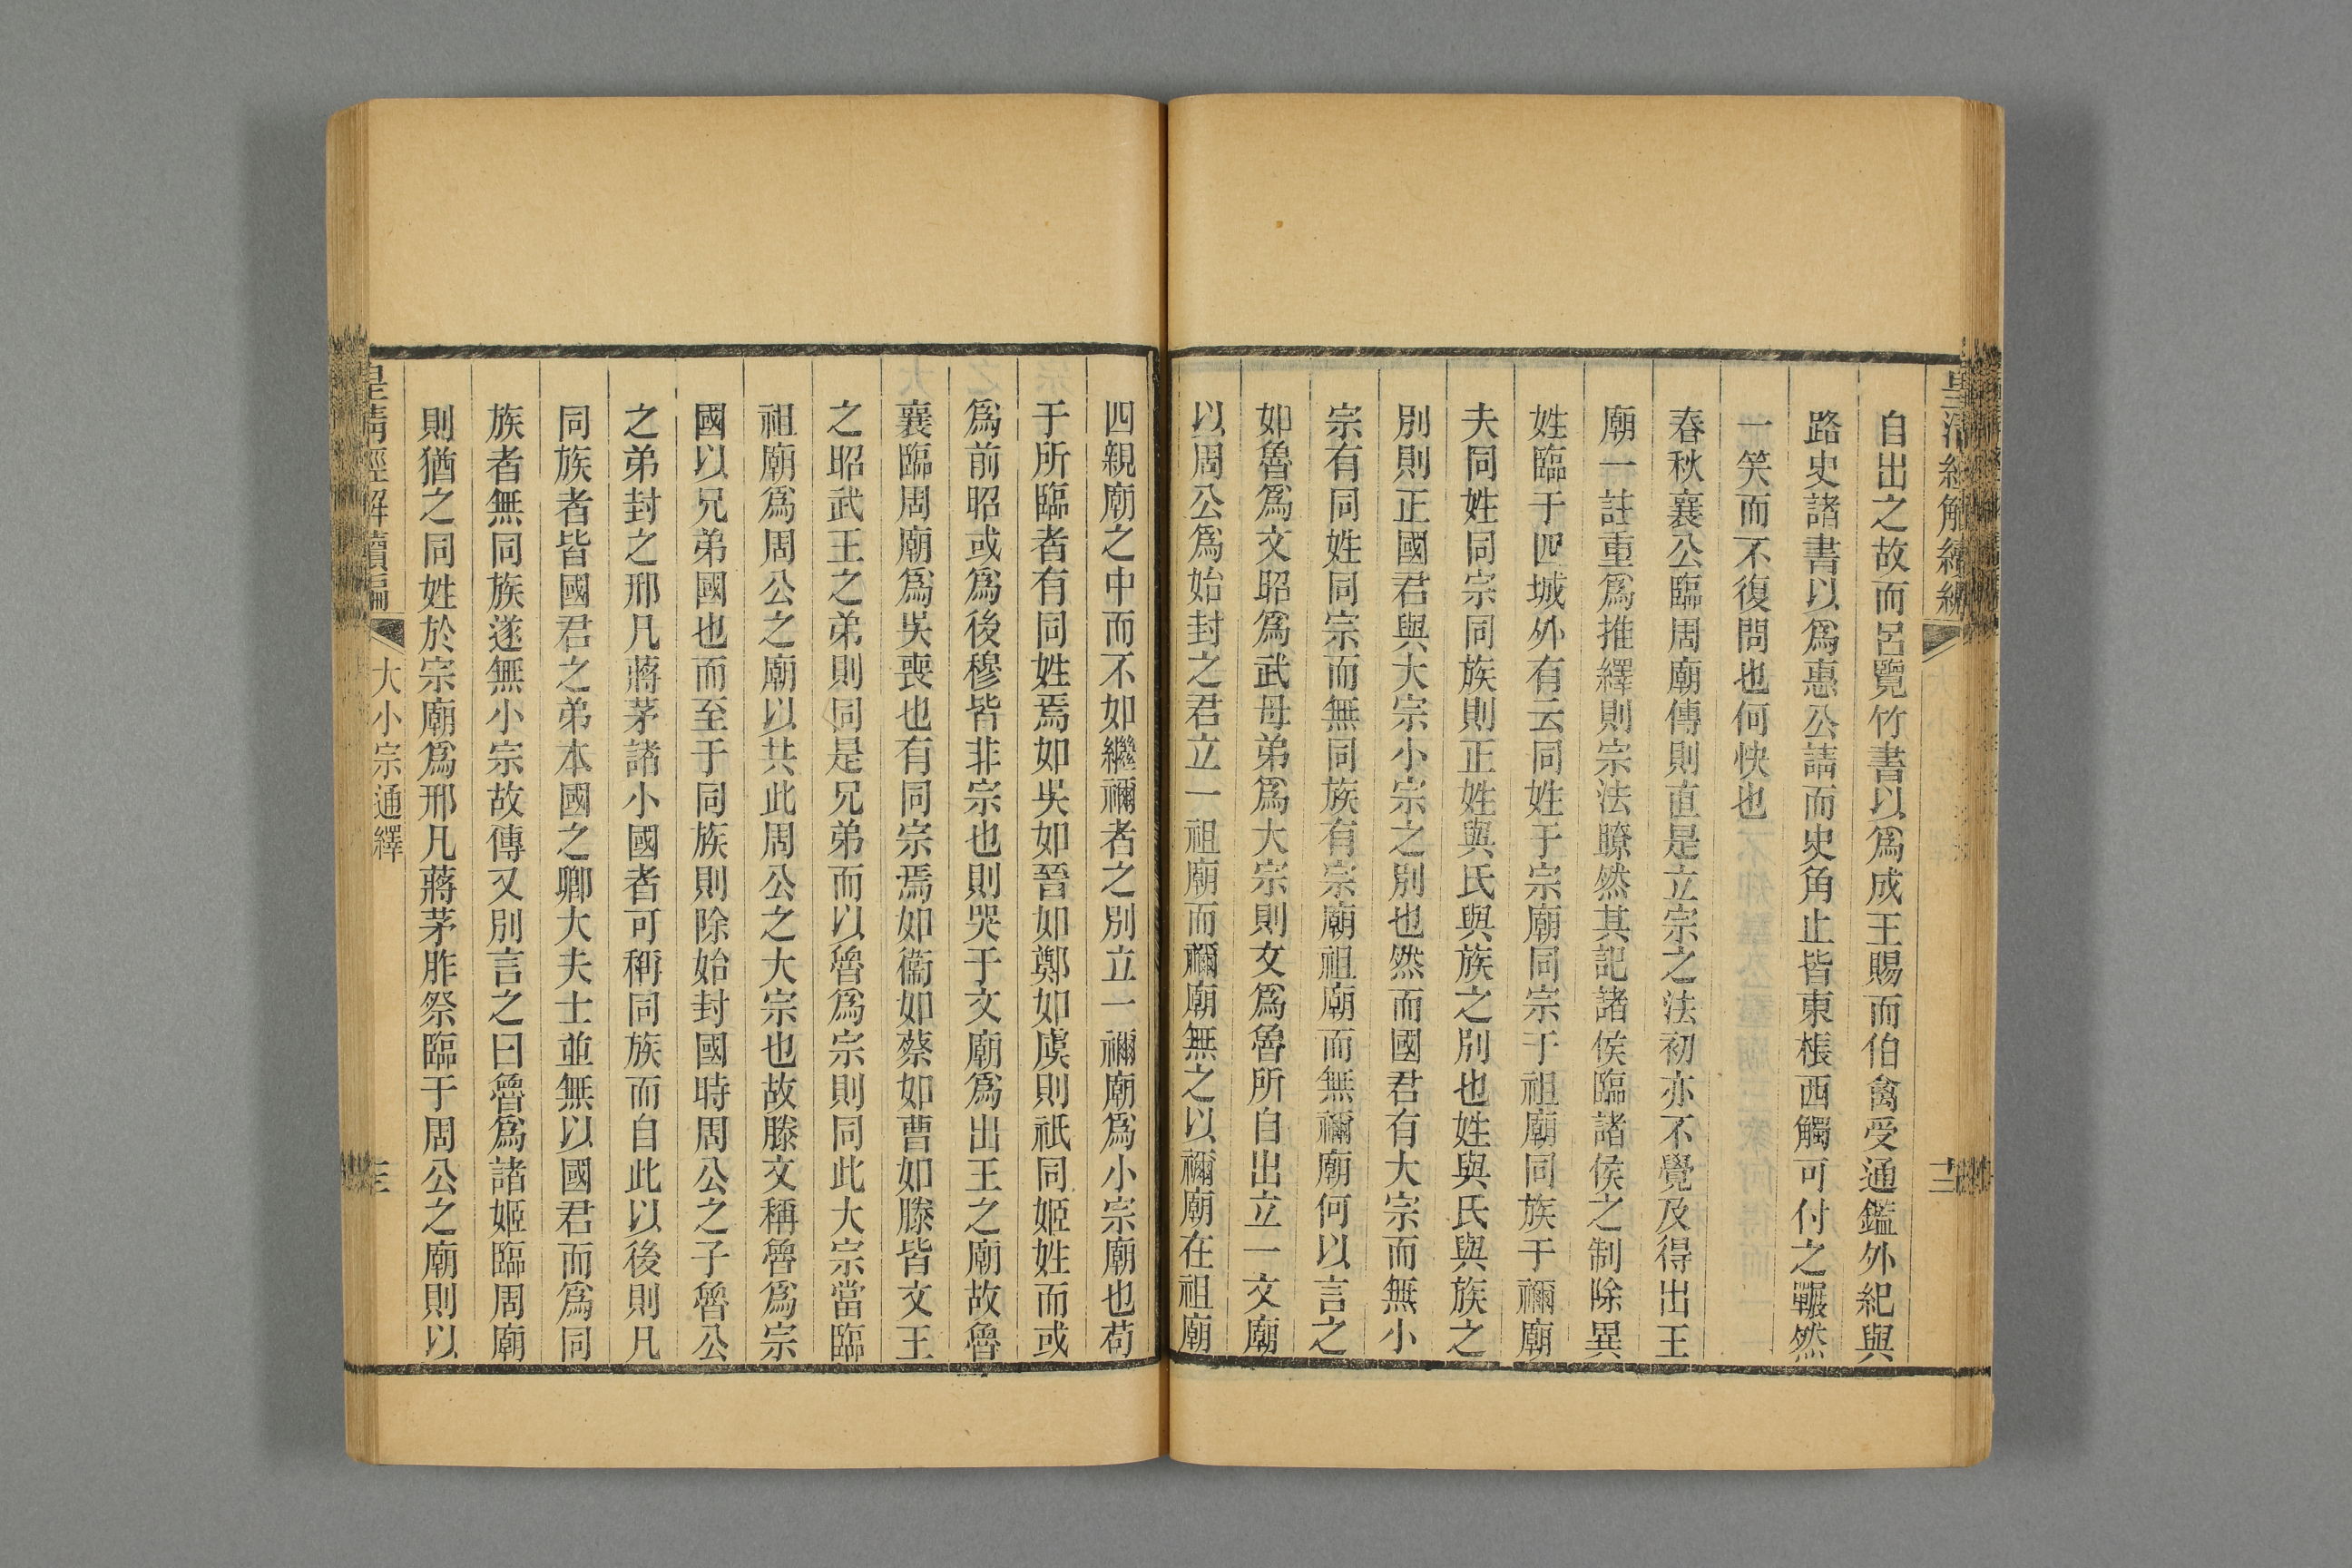 自出之故而呂覽竹書以爲成王賜而伯禽受通鑑外紀與
路史諸書以爲惠公請而史角止皆東棖西觸可付之囅然
一笑而不復問也何快也
春秋襄公臨周廟傳則直是立宗之法初亦不覺及得出王
廟一註重爲推繹則宗法瞭然其記諸侯臨諸侯之制除異
姓臨于四城外有云同姓于宗廟同宗于祖廟同族于禰廟
夫同姓同宗同族則正姓與氏與族之別也姓與氏與族之
別則正國君與大宗小宗之別也然而國君有大宗而無小
宗有同姓同宗而無同族有宗廟祖廟而無禰廟何以言之
如魯爲文昭爲武母弟爲大宗則文爲魯所自出立一文廟
以周公爲始封之君立一祖廟而禰廟無之以禰廟在祖廟
四親廟之中而不如繼禰者之別立一禰廟爲小宗廟也苟
于所臨者有同姓焉如吳如晉如鄭如虞則祇同姬姓而或
爲前昭或爲後穆皆非宗也則哭于文廟爲出王之廟故魯
襄臨周廟爲吳喪也有同宗焉如衞如蔡如曹如滕皆文王
之昭武王之弟則同是兄弟而以魯爲宗則同此大宗當臨
祖廟爲周公之廟以共此周公之大宗也故滕文稱魯爲宗
國以兄弟國也而至于同族則除始封國時周公之子魯公
之弟封之邢凡蔣茅諸小國者可稱同族而自此以後則凡
同族者皆國君之弟本國之卿大夫士並無以國君而爲同
族者無同族遂無小宗故傳又別言之曰魯爲諸姬臨周廟
則猶之同姓於宗廟爲邢凡蔣茅胙祭臨于周公之廟則以
皇清經解續編
大小宗通繹